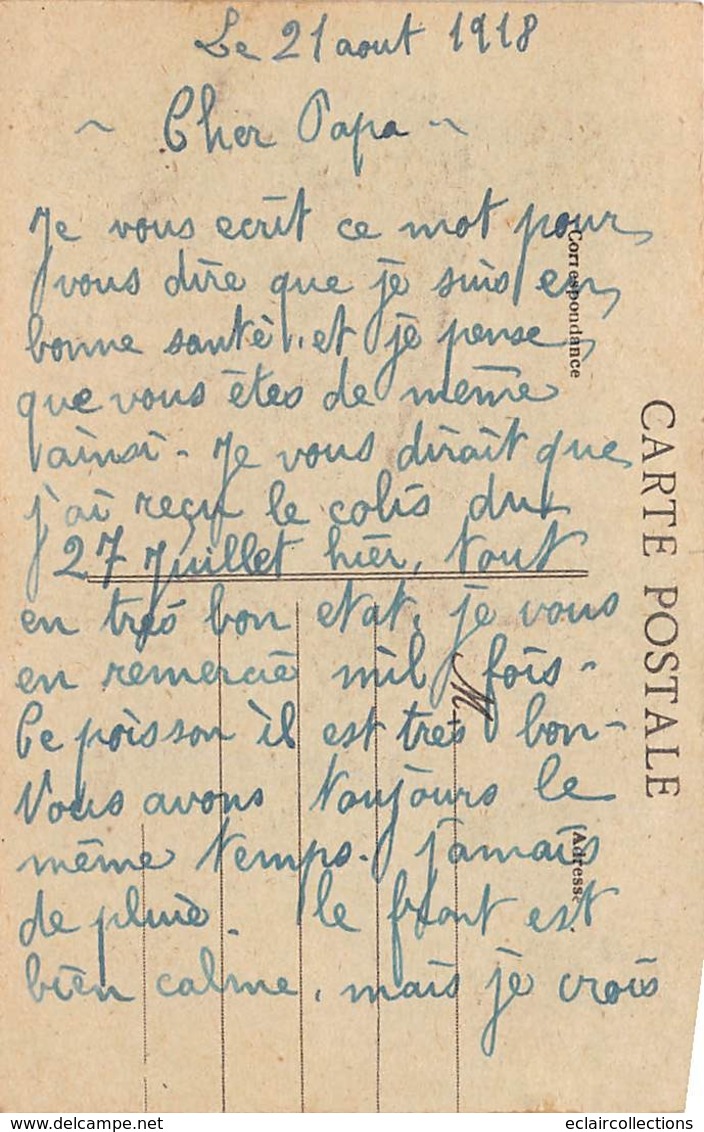 Le 21 aout 1918
~ Cher Papa ~
Je vous ecrit ce mot pour
vous dire que je suis en
bonne santé, et je pense
que vous êtes de même
ainsi - Je vous dirait que
j'ai reçu le colis du
27 Juillet hier, tout
en très bon etat, je vous
en remercie mil fois -
Le poisson il est très bon -
Nous avons toujours le
même temps. jamais
de pluie. le front est
bien calme, mais je crois
CARTE POSTALE
Correspondance
Adresse
M
eclaircollections